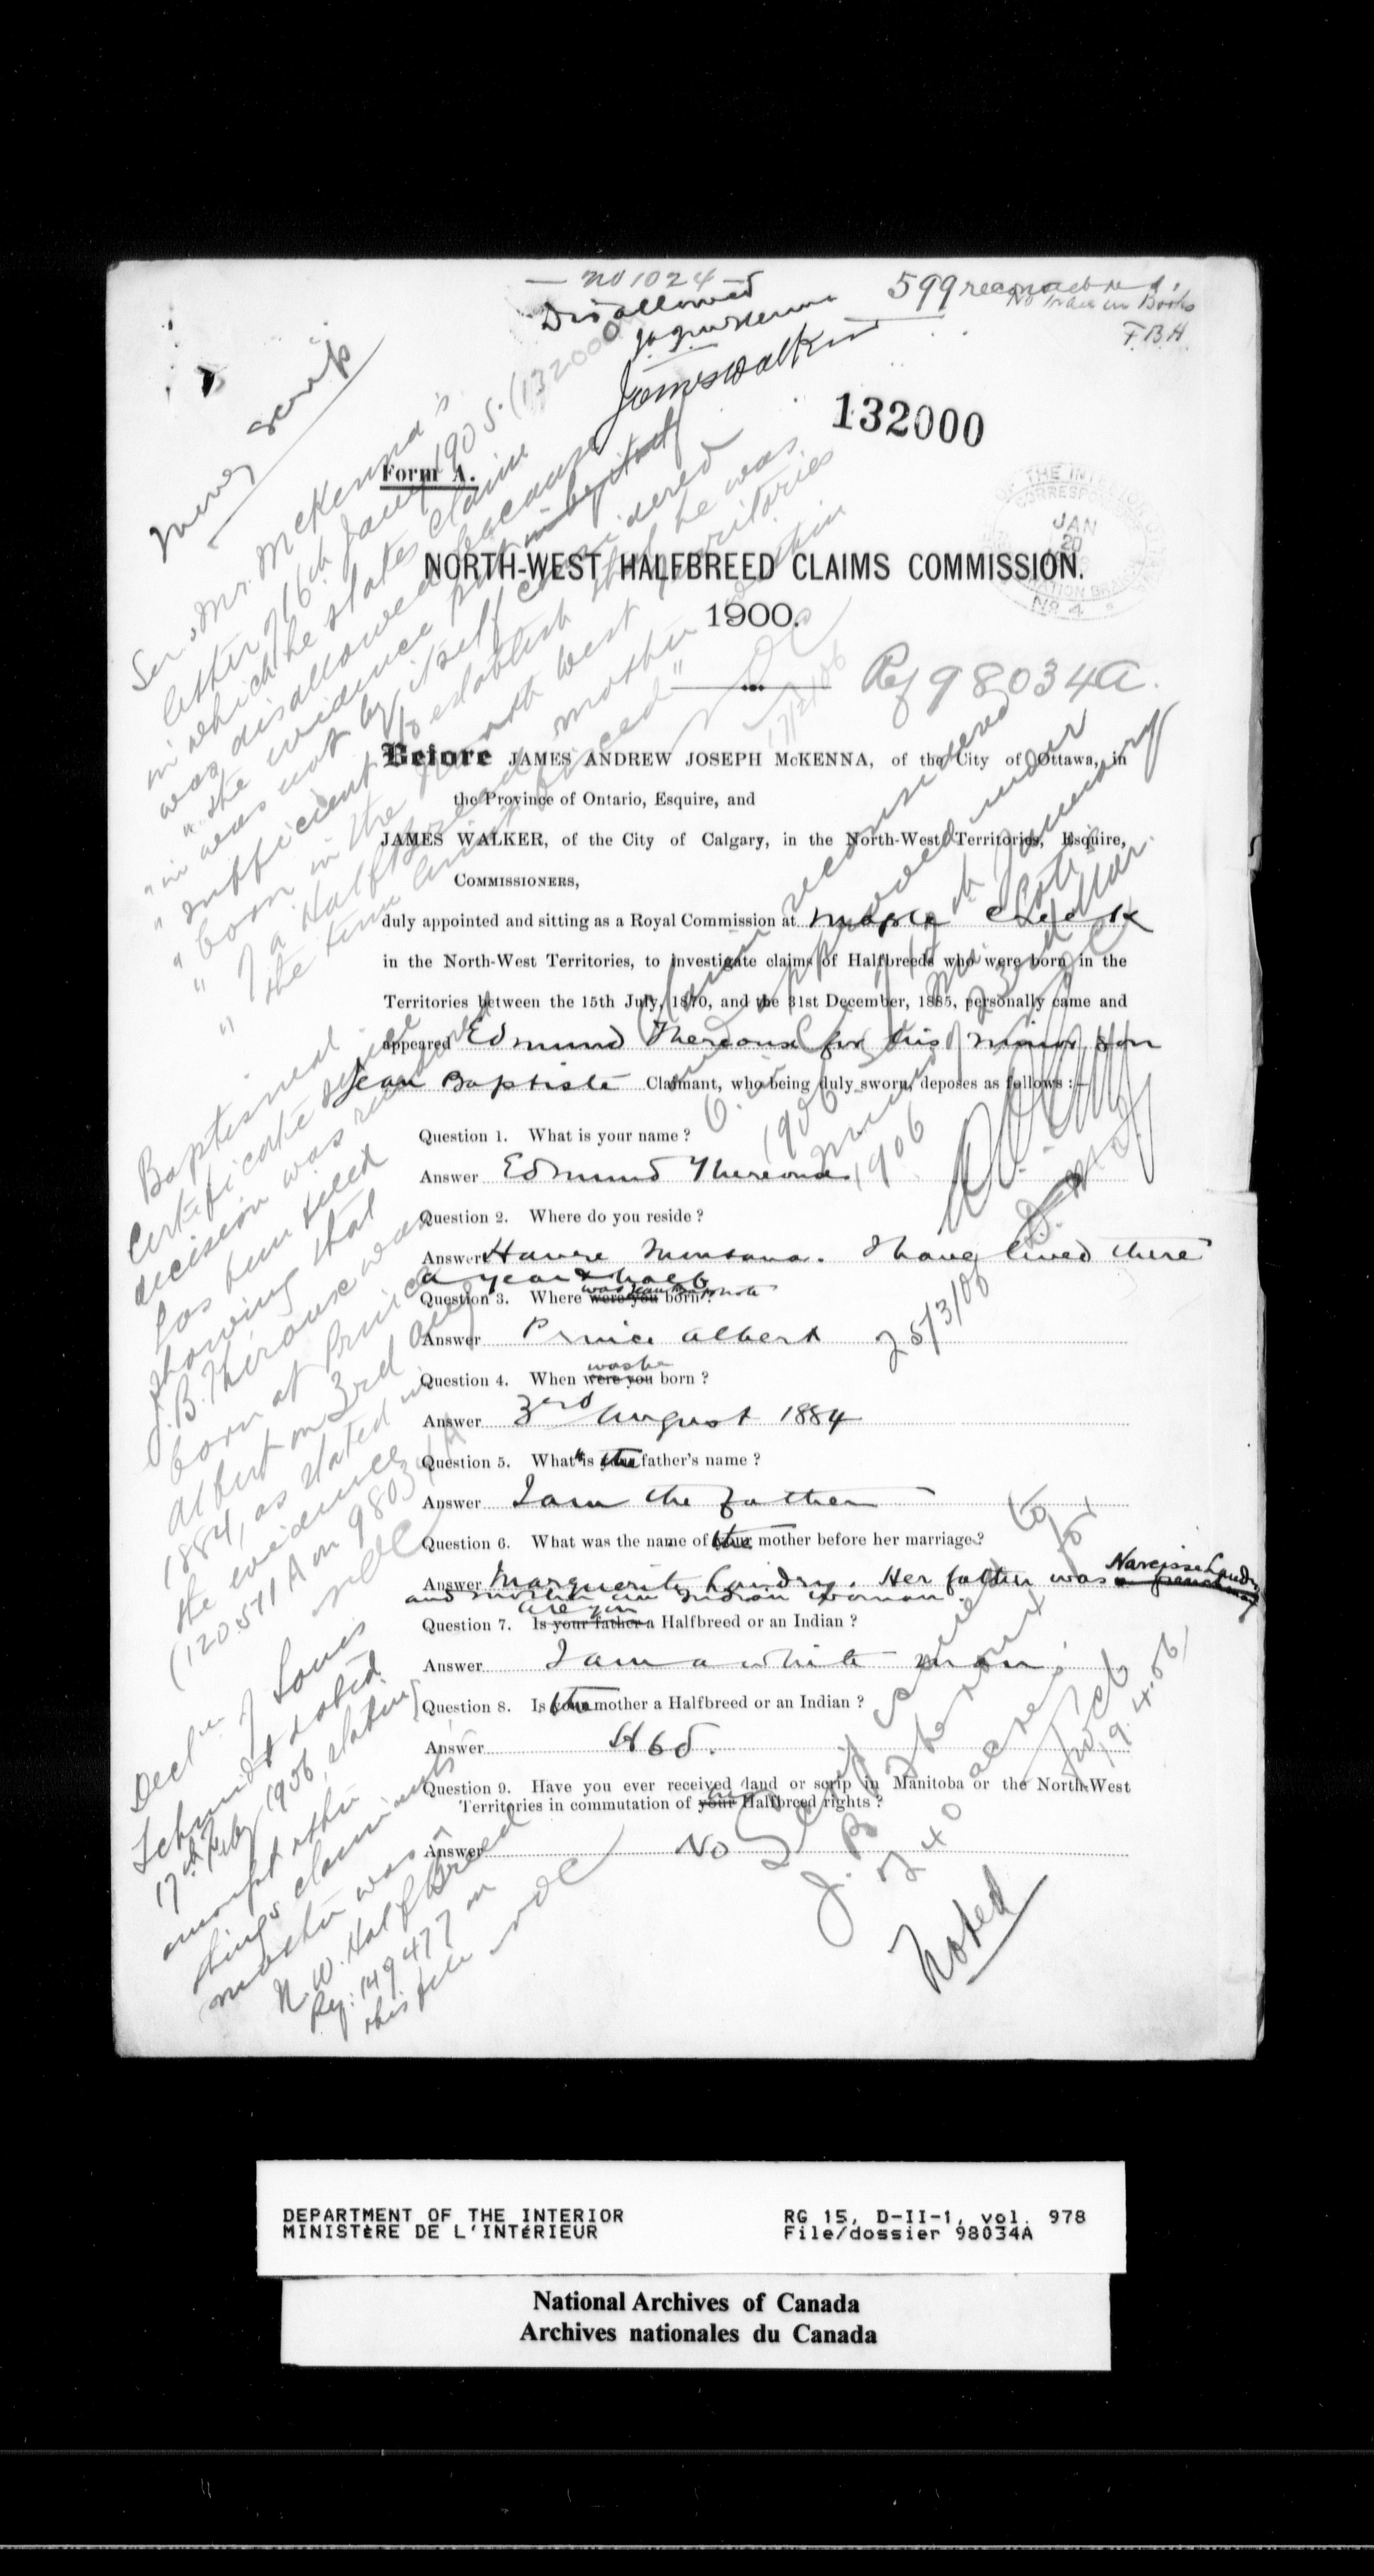 — No 1024 —
Disallowed
J.A.J. McKenna
James Walker
599 reconsidered.
No trace in Books
F.B.H.
132000
money scrip
Form A.
THE INTERIOR
CORRESPONDENCE
JAN
20
No 4
NORTH-WEST HALFBREED CLAIMS COMMISSION.
1900.
Ref 98034A.
See Mr. McKenna's
letter 16th Jany 1905. (132000)
in which he states claim
was disallowed because
"the evidence put in
"was not by itself considered
"sufficient to establish that he was
"born in the North West Territories
"of a Halfbreed mother within
"the time limit fixed"
Before JAMES ANDREW JOSEPH McKENNA, of the City of Ottawa, in
the Province of Ontario, Esquire, and
JAMES WALKER, of the City of Calgary, in the North-West Territories, Esquire,
COMMISSIONERS,
duly appointed and sitting as a Royal Commission at Maple Creek
in the North-West Territories, to investigate claims of Halfbreeds who were born in the
Territories between the 15th July, 1870, and the 31st December, 1885, personally came and
appeared Edmund Thereoux for his minor son
Jean Baptiste Claimant, who being duly sworn, deposes as follows :—
Claim reconsidered
and approved under
1906
1906
25/3/06
Question 1. What is your name ?
Answer Edmund Thereoux
Question 2. Where do you reside ?
Answer Havre Montana. I have lived there
a year & half
Question 3. Where were you born ?
was Jean Baptiste
Answer Prince Albert
Question 4. When were you born ?
was he
Answer 3rd August 1884
Question 5. What is the father's name ?
Answer I am the father
Question 6. What was the name of the mother before her marriage ?
Answer Marguerite Laundry. Her father was Narcisse Laundry
and mother an Indian woman.
Question 7. Is your father a Halfbreed or an Indian ?
are you
Answer I am a white man.
Question 8. Is the mother a Halfbreed or an Indian ?
Answer Hbd.
Question 9. Have you ever received land or scrip in Manitoba or the North-West
Territories in commutation of your Halfbreed rights ?
Answer No
Baptismal
Certificate since
decision was rendered
has been filed
showing that
J.B. Thiroux was
born at Prince
Albert on 3rd Aug
1884, as stated in
the evidence
(120511 A on 98034 A
Decl'n of Louis
Schmidt dated
17th Feby 1906, stating
amongst other
things claimant's
mother was a
N.W. Halfbreed
Reg: 149477 on
this file
Scrip issued to
J. B. Thereoux for
240 acres
19.4.06
Noted
DEPARTMENT OF THE INTERIOR
MINISTÈRE DE L'INTÉRIEUR
RG 15, D-II-1, vol. 978
File/dossier 98034A
National Archives of Canada
Archives nationales du Canada